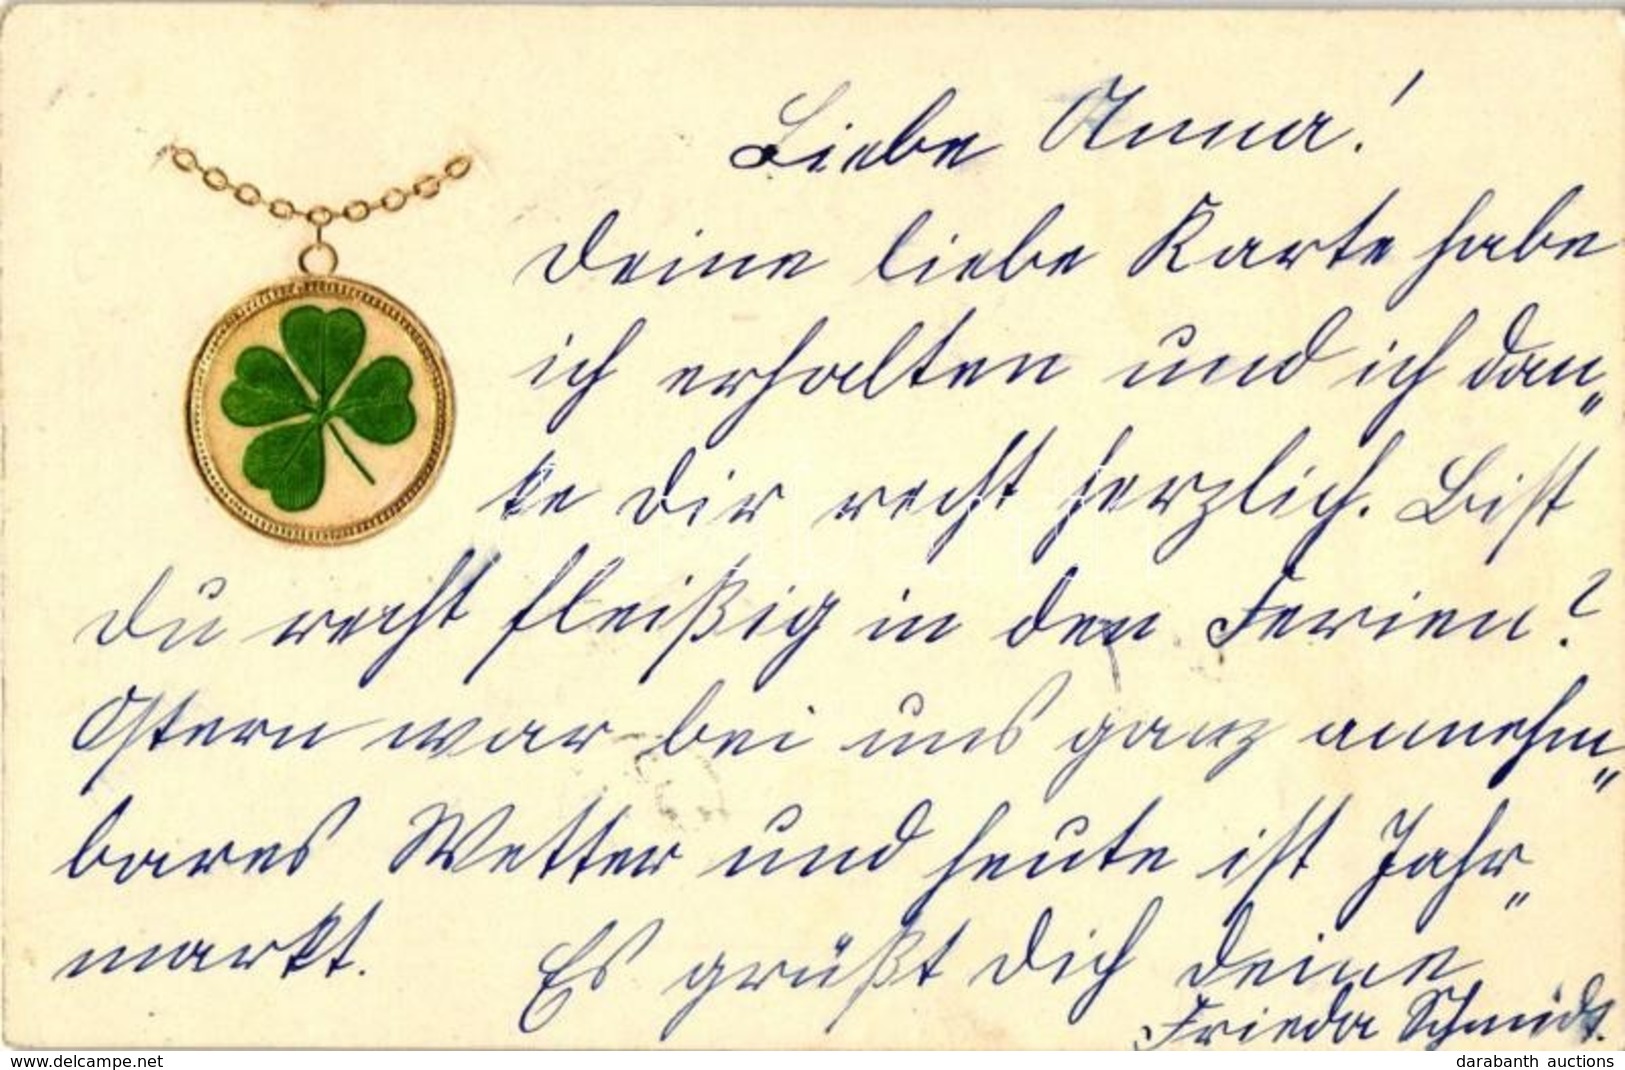 Liebe Anna!
Deine liebe Karte habe
ich erhalten und ich dan„
ke Dir recht herzlich. Bist
Du recht fleißig in den Ferien?
Ostern war bei uns ganz annehm„
bares Wetter und heute ist Jahr„
markt. Es grüßt Dich Deine
Frieda Schmidt.
www.delcampe.net
darabanth auctions